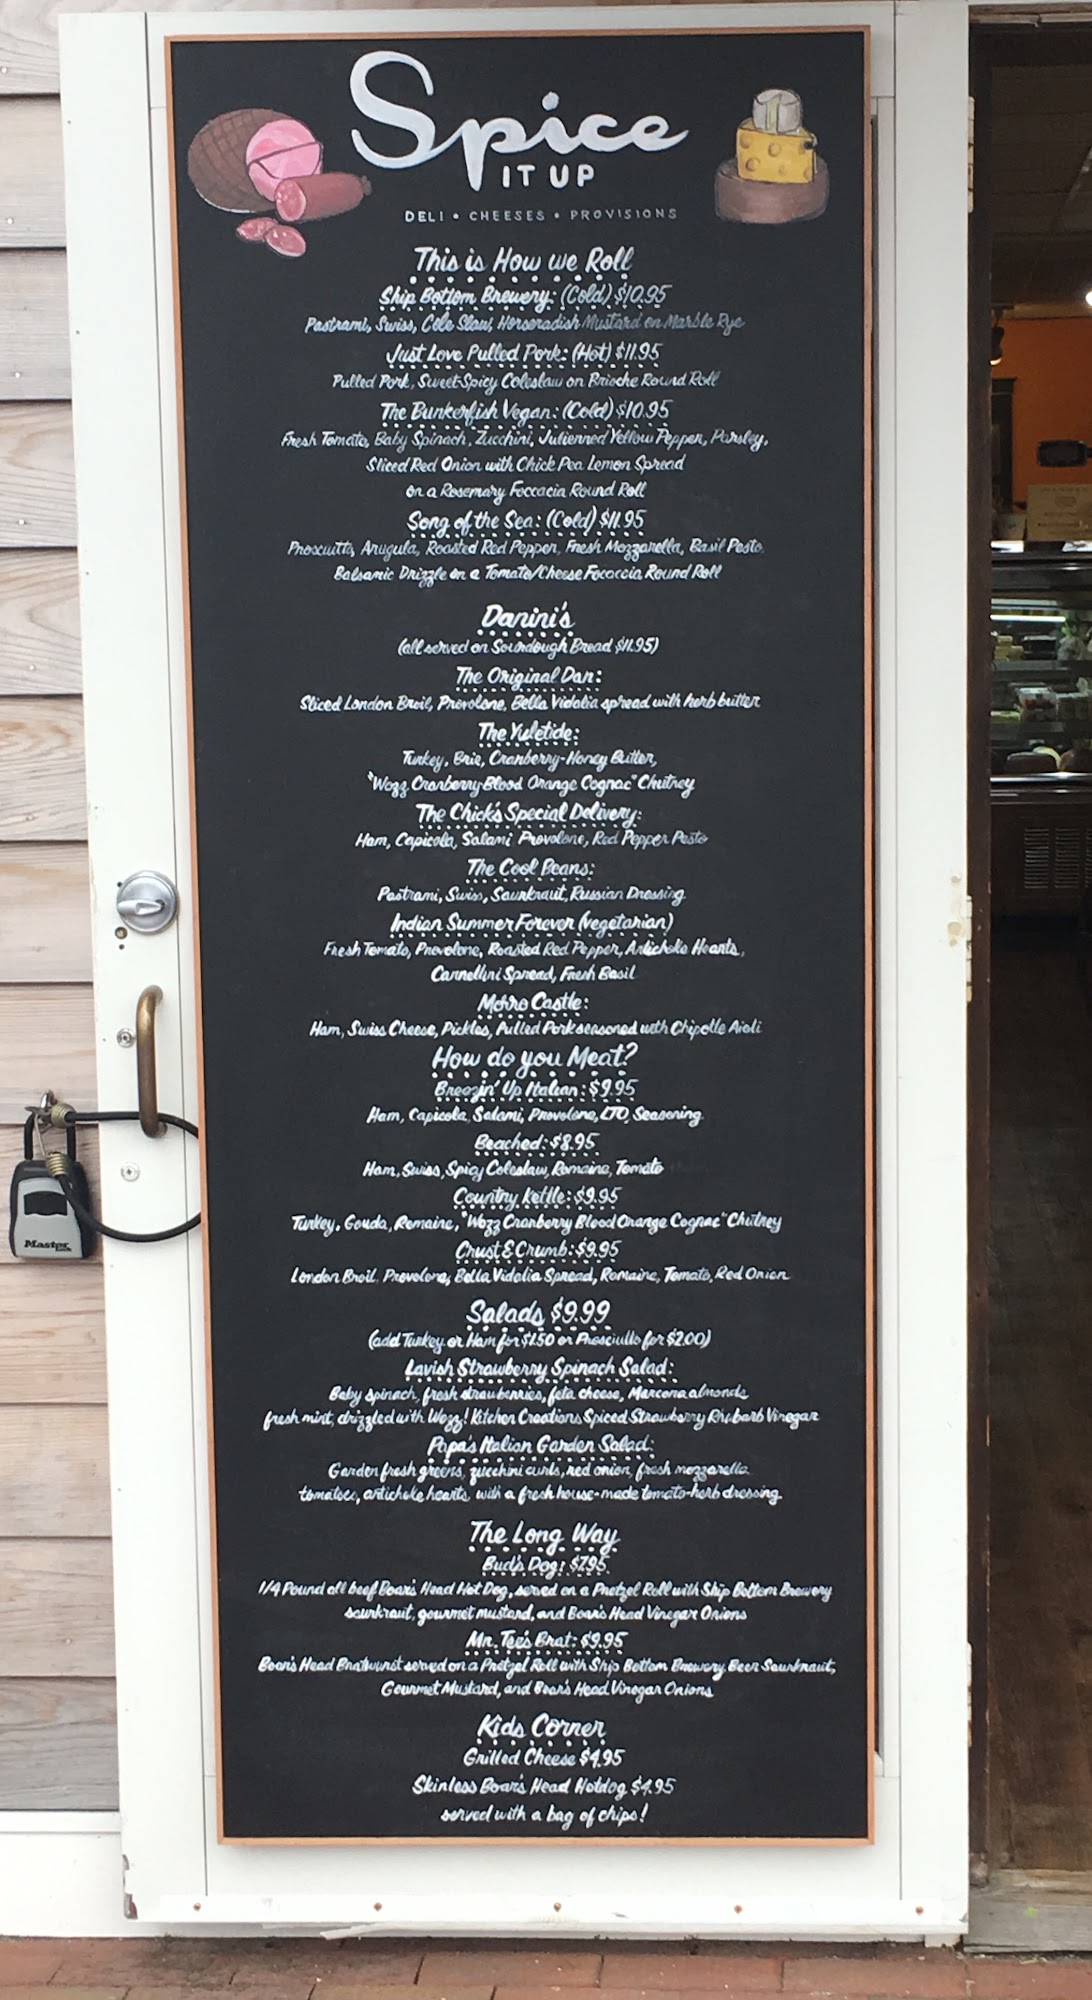 Spice
IT UP
DELI • CHEESES • PROVISIONS
This is How we Roll
Ship Bottom Brewery: (Cold) $10.95
Pastrami, Swiss, Cole Slaw, Horseradish Mustard on Marble Rye
Just Love Pulled Pork: (Hot) $11.95
Pulled Pork, Sweet-Spicy Coleslaw on Brioche Round Roll
The Bunkerfish Vegan: (Cold) $10.95
Fresh Tomato, Baby Spinach, Zucchini, Julienned Yellow Pepper, Parsley,
Sliced Red Onion with Chick Pea Lemon Spread
on a Rosemary Foccacia Round Roll
Song of the Sea: (Cold) $11.95
Proscuitto, Arugula, Roasted Red Pepper, Fresh Mozzarella, Basil Pesto,
Balsamic Drizzle on a Tomato/Cheese Focaccia Round Roll
Danini's
(all served on Sourdough Bread $11.95)
The Original Dan:
Sliced London Broil, Provolone, Bella Vidalia spread with herb butter
The Yuletide:
Turkey, Brie, Cranberry-Honey Butter,
"Wozz Cranberry Blood Orange Cognac" Chutney
The Chick's Special Delivery:
Ham, Capicola, Salami Provolone, Red Pepper Pesto
The Cool Beans:
Pastrami, Swiss, Saurkraut, Russian Dressing
Indian Summer Forever (vegetarian)
Fresh Tomato, Provolone, Roasted Red Pepper, Artichoke Hearts,
Cannellini Spread, Fresh Basil
Mohro Castle:
Ham, Swiss Cheese, Pickles, Pulled Pork seasoned with Chipotle Aioli
How do you Meat?
Breezin' Up Italian: $9.95
Ham, Capicola, Salami, Provolone, LTO, Seasoning
Beached: $8.95
Ham, Swiss, Spicy Coleslaw, Romaine, Tomato
Country Kettle: $9.95
Turkey, Gouda, Romaine, "Wozz Cranberry Blood Orange Cognac" Chutney
Crust & Crumb: $9.95
London Broil, Provolone, Bella Vidalia Spread, Romaine, Tomato, Red Onion
Salads $9.99
(add Turkey or Ham for $1.50 or Prosciutto for $2.00)
Lavish Strawberry Spinach Salad:
Baby spinach, fresh strawberries, feta cheese, Marcona almonds
fresh mint, drizzled with Wozz! Kitchen Creations Spiced Strawberry Rhubarb Vinegar
Papa's Italian Garden Salad:
Garden fresh greens, zucchini curls, red onion, fresh mozzarella
tomatoes, artichoke hearts, with a fresh house-made tomato-herb dressing
The Long Way
Bud's Dog: $7.95
1/4 Pound all beef Boar's Head Hot Dog, served on a Pretzel Roll with Ship Bottom Brewery
saurkraut, gourmet mustard, and Boar's Head Vinegar Onions
Mr. Tee's Brat: $9.95
Boar's Head Bratwurst served on a Pretzel Roll with Ship Bottom Brewery Beer Saurkraut,
Gourmet Mustard, and Boar's Head Vinegar Onions
Kids Corner
Grilled Cheese $4.95
Skinless Boar's Head Hotdog $4.95
served with a bag of chips!
Master Lock